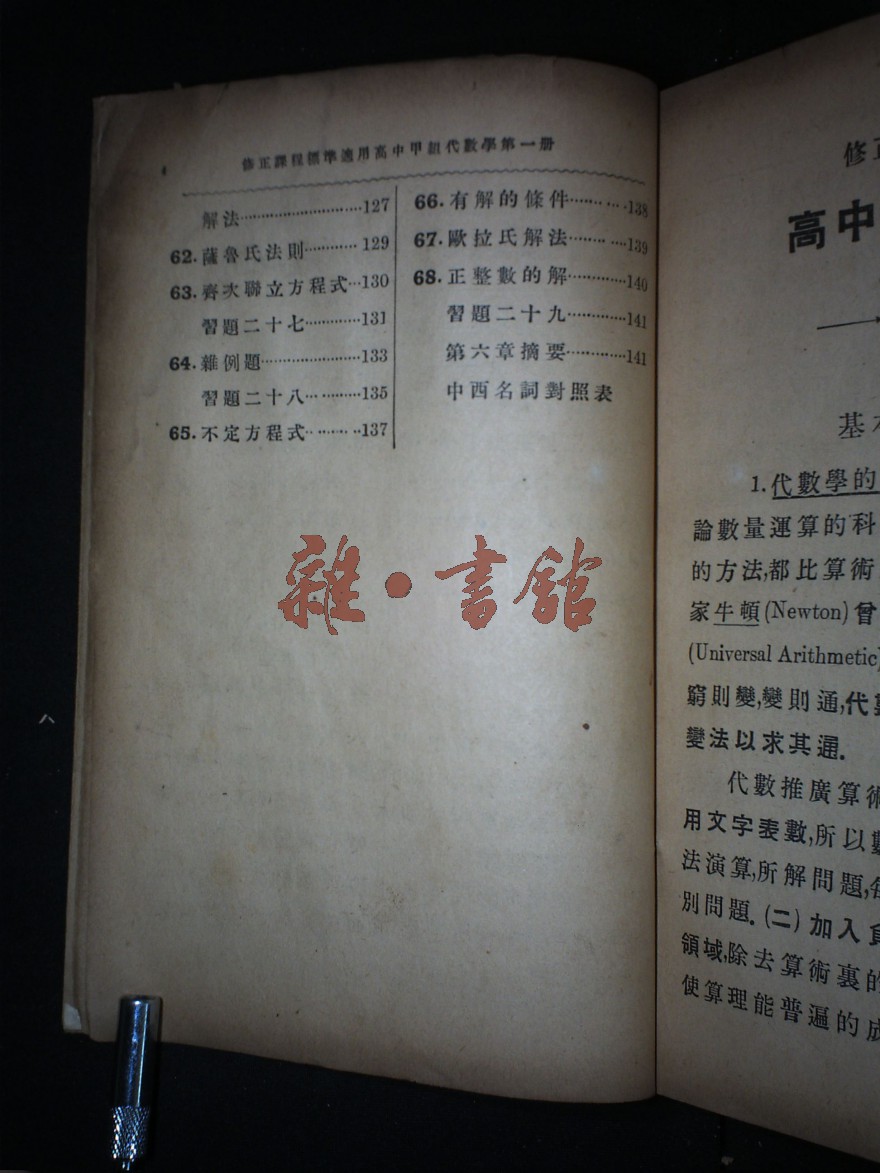 修正課程標準適用高中甲組代數學第一册
解法…………………………127
62.薩魯氏法則…………129
63.齊次聯立方程式…130
習題二十七…………131
64.雜例題……………………133
習題二十八…………135
65.不定方程式………137
66.有解的條件…………138
67.歐拉氏解法…………139
68.正整數的解…………140
習題二十九…………141
第六章摘要…………141
中西名詞對照表
雜·書舘
修
高中
基
1.代數學的
論數量運算的科
的方法,都比算術
家牛頓(Newton)曾
(Universal Arithmetic)
窮則變,變則通,代
變法以求其通.
代數推廣算術
用文字表數,所以
法演算,所解問題,
別問題.(二)加入
領域,除去算術裏的
使算理能普遍的成